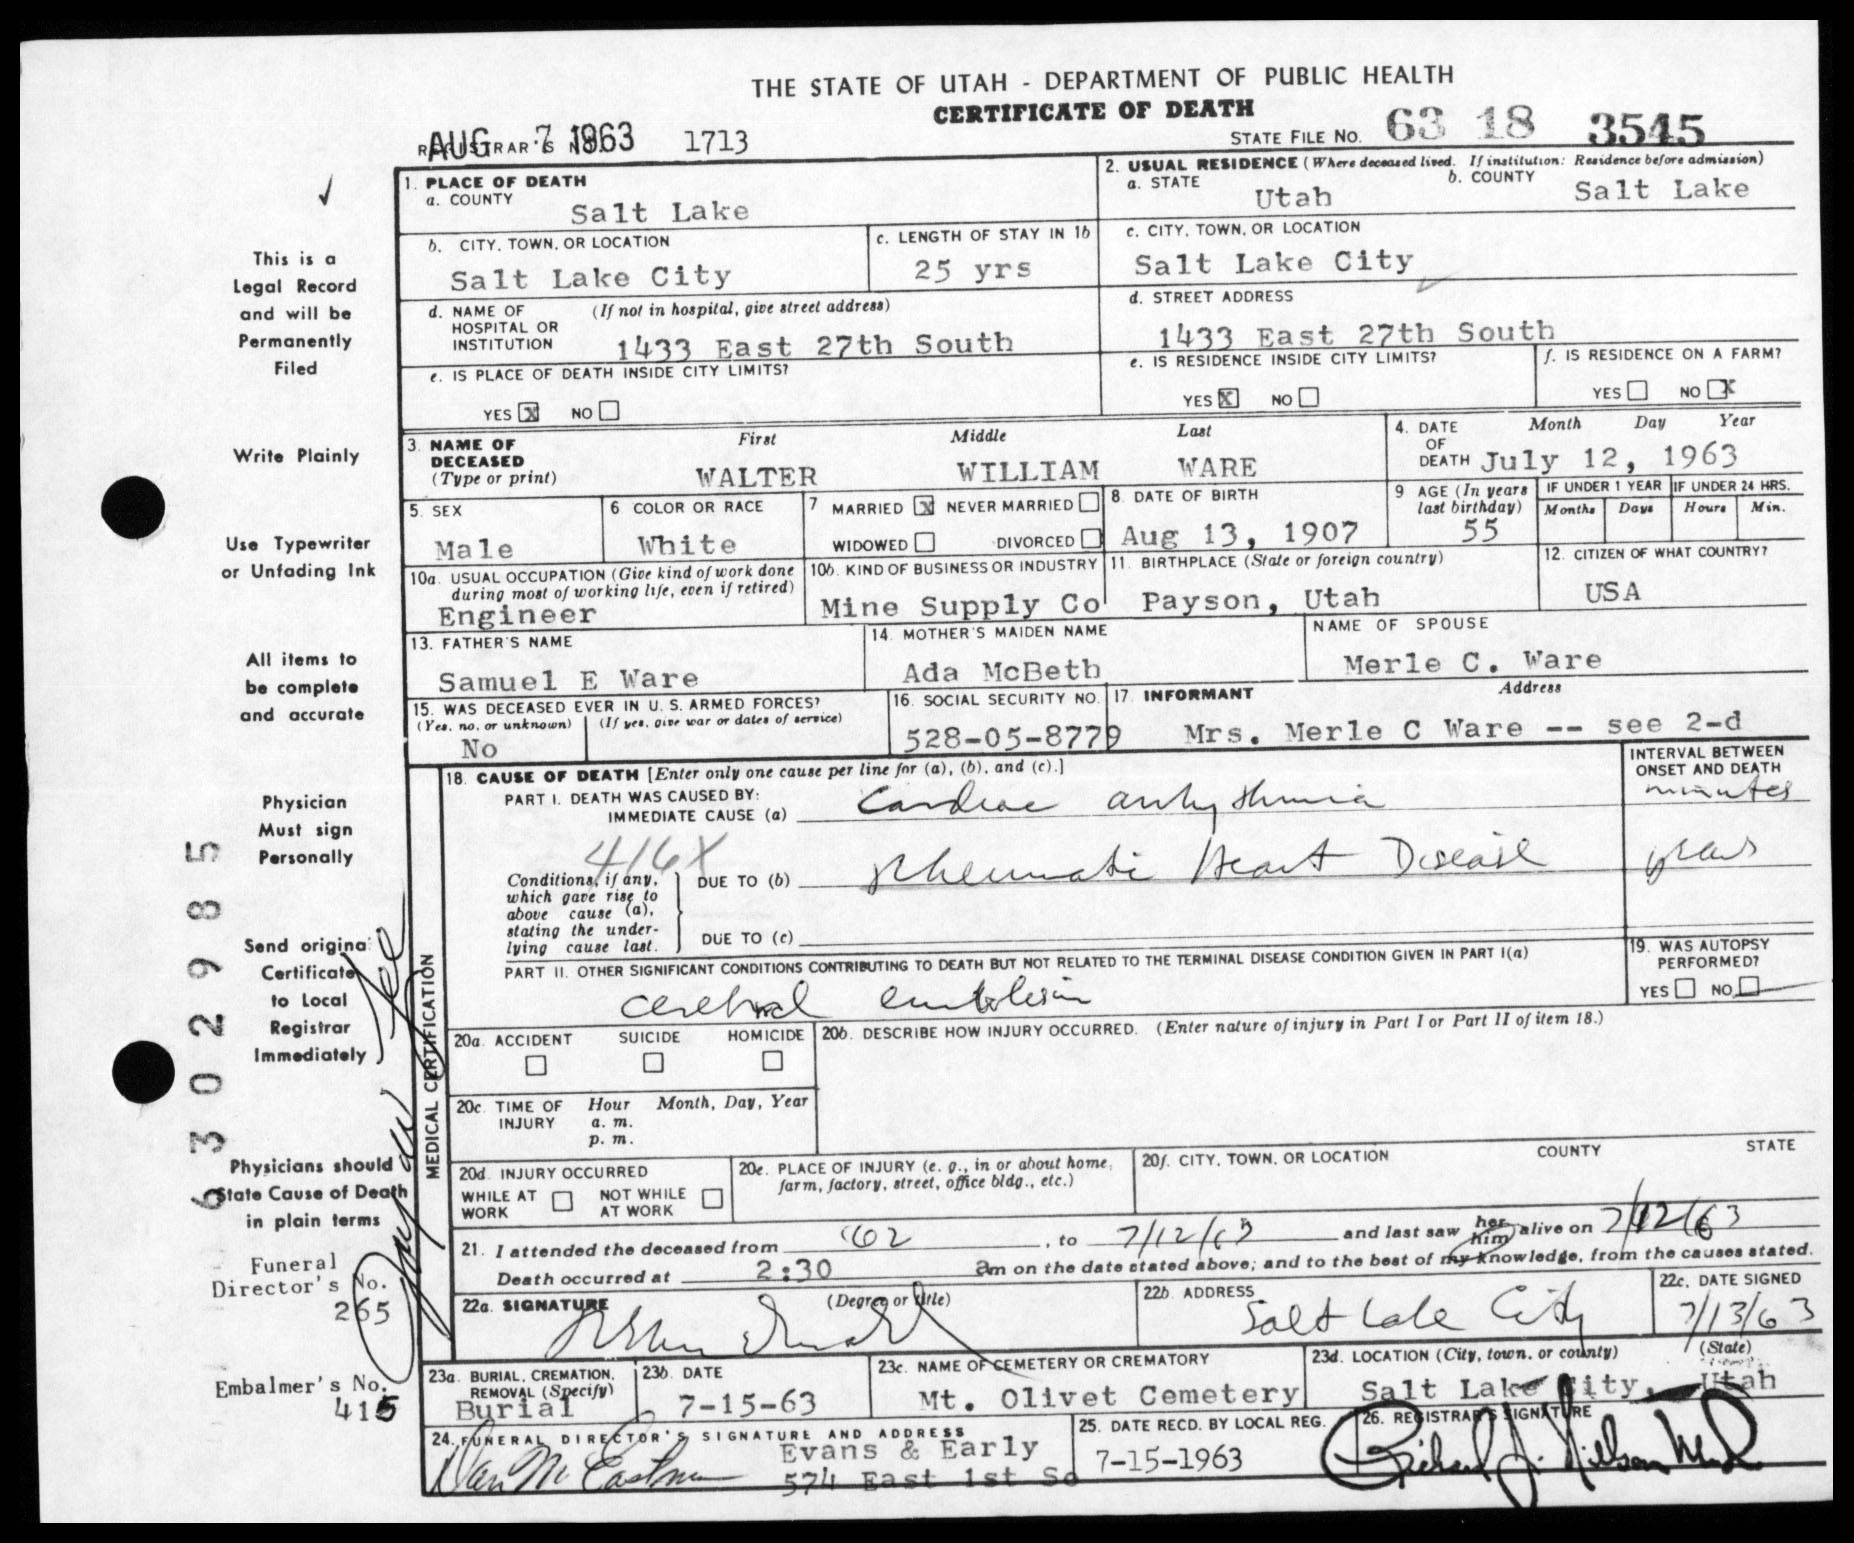 THE STATE OF UTAH - DEPARTMENT OF PUBLIC HEALTH
CERTIFICATE OF DEATH
AUG 7 1963
REGISTRAR'S NO. 1713
STATE FILE NO. 63 18 3545
This is a
Legal Record
and will be
Permanently
Filed
Write Plainly
Use Typewriter
or Unfading Ink
All items to
be complete
and accurate
Physician
Must sign
Personally
Send original
Certificate
to Local
Registrar
Immediately
Physicians should
State Cause of Death
in plain terms
Funeral
Director's No.
265
Embalmer's No.
415
6302985
1. PLACE OF DEATH
a. COUNTY
Salt Lake
2. USUAL RESIDENCE (Where deceased lived. If institution: Residence before admission)
a. STATE Utah
b. COUNTY Salt Lake
b. CITY, TOWN, OR LOCATION
Salt Lake City
c. LENGTH OF STAY IN 1b
25 yrs
c. CITY, TOWN, OR LOCATION
Salt Lake City
d. NAME OF HOSPITAL OR INSTITUTION (If not in hospital, give street address)
1433 East 27th South
d. STREET ADDRESS
1433 East 27th South
e. IS PLACE OF DEATH INSIDE CITY LIMITS?
YES X NO
e. IS RESIDENCE INSIDE CITY LIMITS?
YES X NO
f. IS RESIDENCE ON A FARM?
YES NO X
3. NAME OF DECEASED (Type or print)
First Middle Last
WALTER WILLIAM WARE
4. DATE OF DEATH
Month Day Year
July 12, 1963
5. SEX
Male
6 COLOR OR RACE
White
7 MARRIED X NEVER MARRIED
WIDOWED DIVORCED
8. DATE OF BIRTH
Aug 13, 1907
9 AGE (In years last birthday)
55
IF UNDER 1 YEAR
Months Days
IF UNDER 24 HRS.
Hours Min.
10a. USUAL OCCUPATION (Give kind of work done during most of working life, even if retired)
Engineer
10b. KIND OF BUSINESS OR INDUSTRY
Mine Supply Co
11. BIRTHPLACE (State or foreign country)
Payson, Utah
12. CITIZEN OF WHAT COUNTRY?
USA
13. FATHER'S NAME
Samuel E Ware
14. MOTHER'S MAIDEN NAME
Ada McBeth
NAME OF SPOUSE
Merle C. Ware
15. WAS DECEASED EVER IN U. S. ARMED FORCES?
(Yes, no, or unknown) (If yes, give war or dates of service)
No
16. SOCIAL SECURITY NO.
528-05-8779
17. INFORMANT Address
Mrs. Merle C Ware -- see 2-d
MEDICAL CERTIFICATION
18. CAUSE OF DEATH [Enter only one cause per line for (a), (b), and (c).]
INTERVAL BETWEEN ONSET AND DEATH
PART I. DEATH WAS CAUSED BY:
IMMEDIATE CAUSE (a) Cardiac arrhythmia minutes
416X
Conditions, if any, which gave rise to above cause (a), stating the underlying cause last.
DUE TO (b) Rheumatic Heart Disease years
DUE TO (c)
PART II. OTHER SIGNIFICANT CONDITIONS CONTRIBUTING TO DEATH BUT NOT RELATED TO THE TERMINAL DISEASE CONDITION GIVEN IN PART I(a)
cerebral embolism
19. WAS AUTOPSY PERFORMED?
YES NO
20a. ACCIDENT SUICIDE HOMICIDE
20b. DESCRIBE HOW INJURY OCCURRED. (Enter nature of injury in Part I or Part II of item 18.)
20c. TIME OF INJURY Hour Month, Day, Year
a. m.
p. m.
20d. INJURY OCCURRED
WHILE AT WORK NOT WHILE AT WORK
20e. PLACE OF INJURY (e. g., in or about home, farm, factory, street, office bldg., etc.)
20f. CITY, TOWN, OR LOCATION COUNTY STATE
21. I attended the deceased from '62, to 7/12/63 and last saw her him alive on 7/12/63
Death occurred at 2:30 am on the date stated above; and to the best of my knowledge, from the causes stated.
22a. SIGNATURE (Degree or title)
22b. ADDRESS
Salt Lake City
22c. DATE SIGNED
7/13/63
23a. BURIAL, CREMATION, REMOVAL (Specify)
Burial
23b. DATE
7-15-63
23c. NAME OF CEMETERY OR CREMATORY
Mt. Olivet Cemetery
23d. LOCATION (City, town, or county) (State)
Salt Lake City, Utah
24. FUNERAL DIRECTOR'S SIGNATURE AND ADDRESS
Dan M Eastman
Evans & Early
574 East 1st So
25. DATE RECD. BY LOCAL REG.
7-15-1963
26. REGISTRAR'S SIGNATURE
Richard J. Nilson M.D.